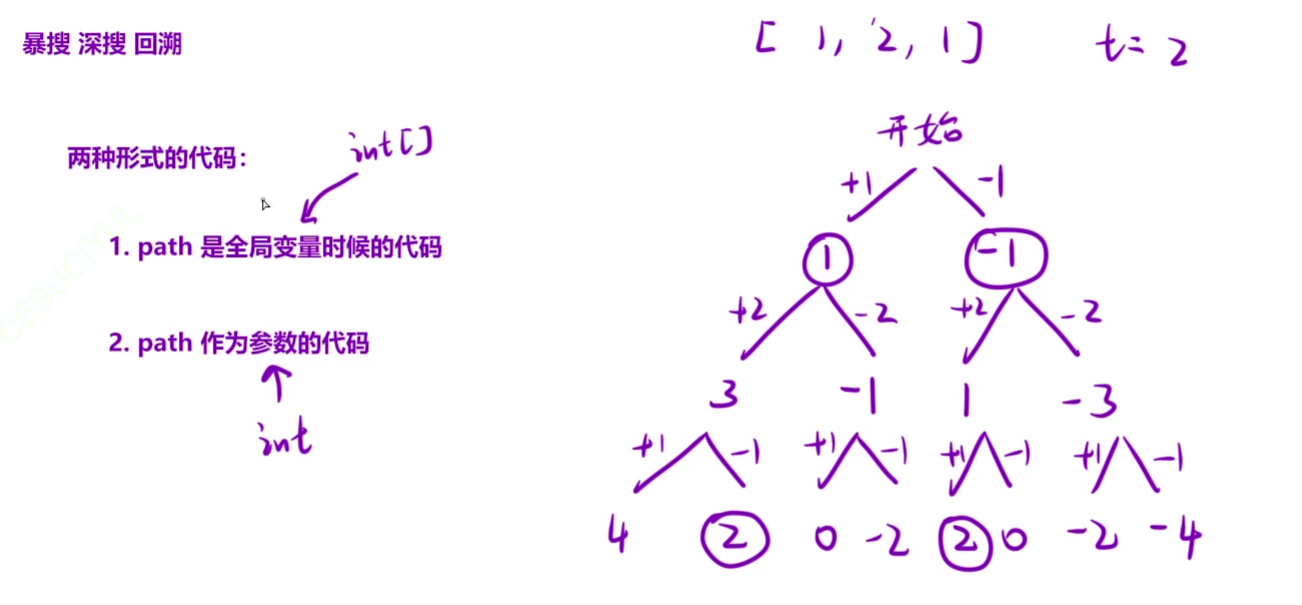 暴搜 深搜 回溯
[ 1, 2, 1 ] t = 2
两种形式的代码：
int[]
1. path 是全局变量时候的代码
2. path 作为参数的代码
int
开始
+1 -1
1 -1
+2 -2 +2 -2
3 -1 1 -3
+1 -1 +1 -1 +1 -1 +1 -1
4 2 0 -2 2 0 -2 -4